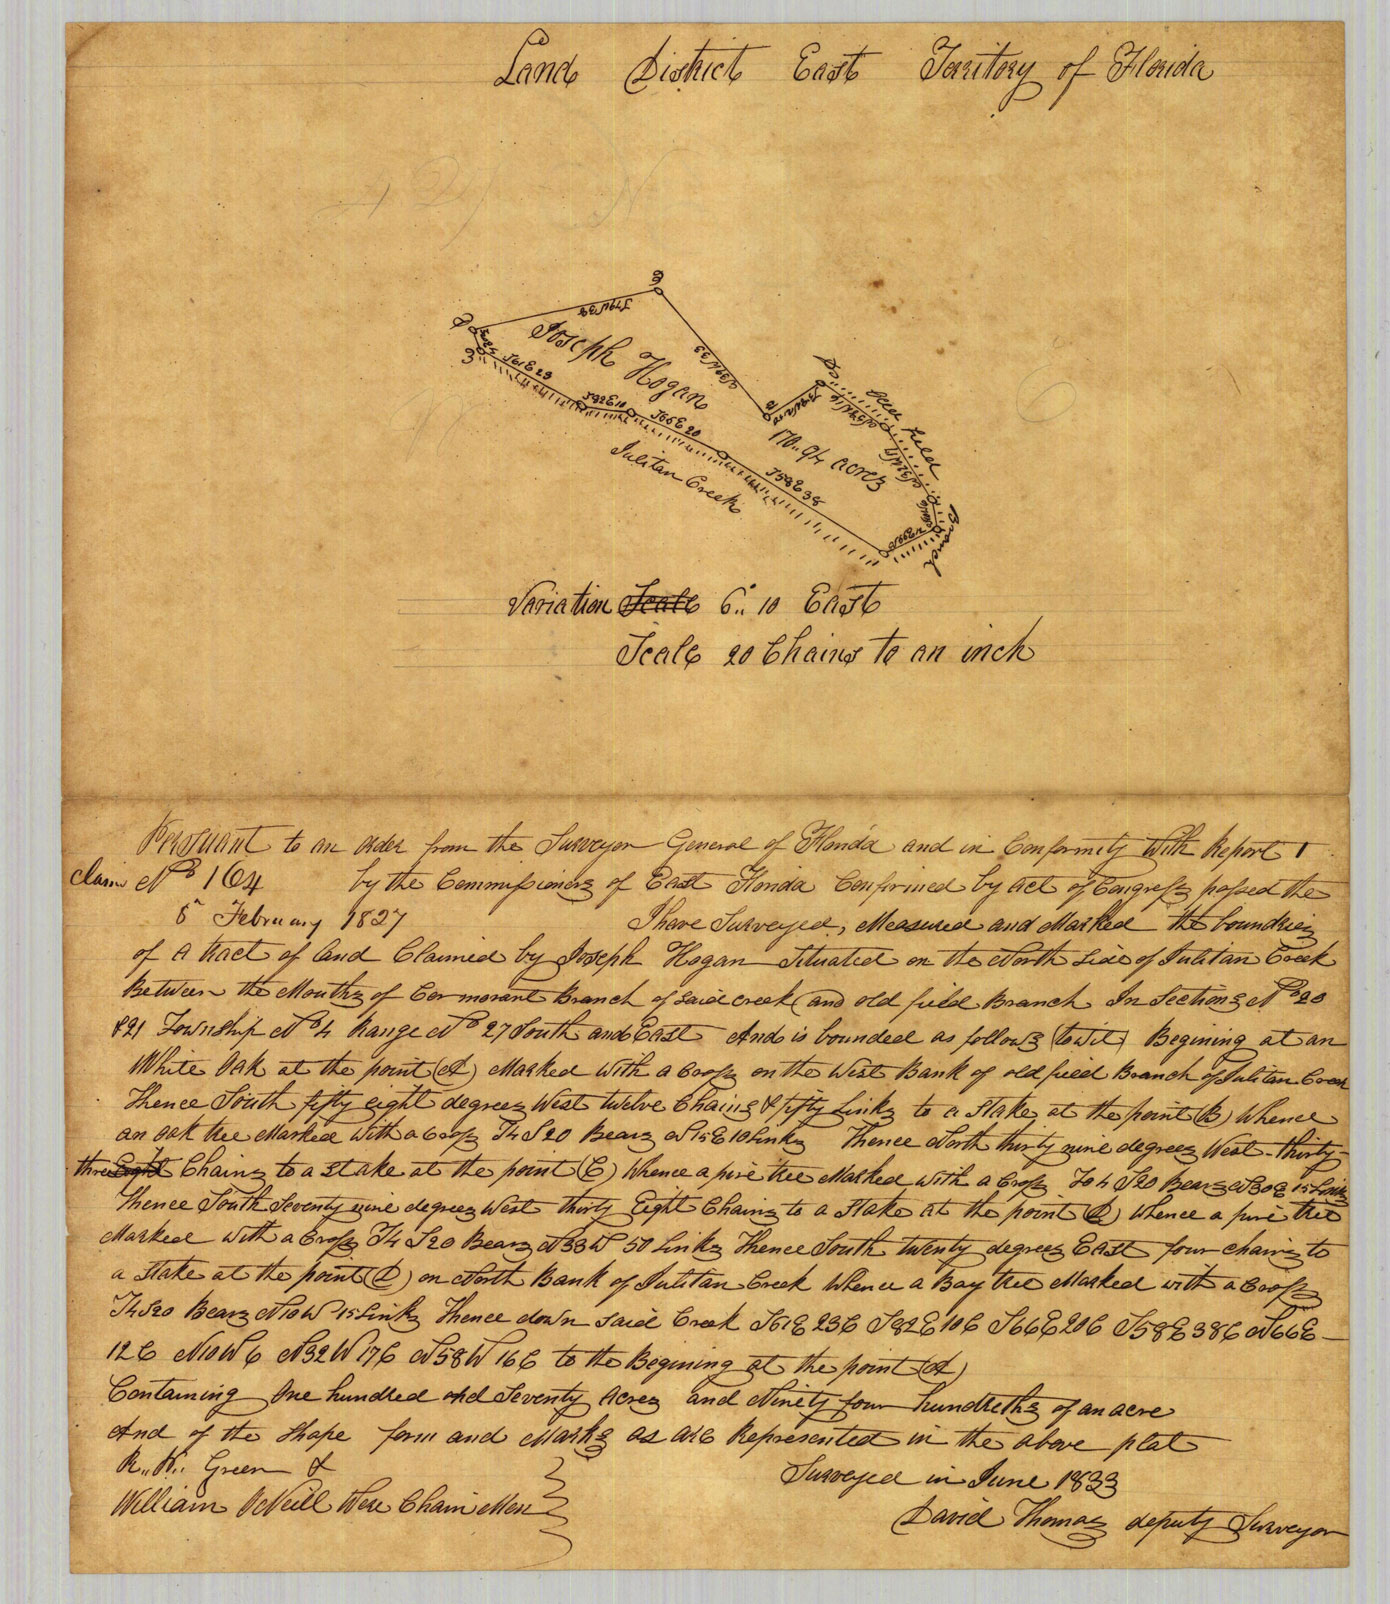 Land District East Territory of Florida
C
S79W38
D
S20E4
3
S61E23
Joseph Hogan
N39W33
S82E10
S66E20
B
A
N58W16
Old field
170..94 acres
N32W17
Julitan Creek
S58E38
N66E12
Branch
Variation Scale 6°.. 10 East
Scale 20 Chains to an inch
Persuant to an order from the Surveyor General of Florida and in Conformity With Report 1
claim No 164 by the Commissioners of East Florida Confirmed by act of Congress passed the
8th February 1827 I have Surveyed, Measured and Marked the boundries
of a tract of land Claimed by Joseph Hogan Situated on the North Side of Julitan Creek
Between the Mouths of Cormorant Branch of said creek (and old field Branch In Sections No 20
&21 Township No 4 Range No 27 South and East And is bounded as follows (to wit) Begining at an
White Oak at the point (A) Marked With a Cross on the West Bank of old field Branch of Julitan Creek
Thence South fifty eight degrees West twelve Chains & fifty Links to a Stake at the point (B) Whence
an oak tree Marked With a Cross T4 S20 Bears N15E 10 Links Thence North thirty nine degrees West thirty
three Eight Chains to a Stake at the point (C) Whence a pine tree Marked with a Cross To 4 S20 Bears N30E 15 Links
Thence South Seventy nine degrees West thirty Eight Chains to a Stake at the point (D) Whence a pine tree
Marked With a Cross T4 S20 Bears N33W 50 Links Thence South twenty degrees East four chains to
a Stake at the point (D) on North Bank of Julitan Creek Whence a Bay tree Marked with a Cross
T4 S20 Bears N10W 15 Links Thence down said Creek S61E 23C S82E 10C S66E 20C S58E 38C N66E
12C N10W 6 N32W 17C N58W 16C to the Begining at the point (A)
Containing One hundred and Seventy Acres and Ninety four hundreths of an acre
And of the Shape form and Marks as are Represented in the above plat
R.. W.. Green &
William ONeill Were Chain Men
Surveyed in June 1833
David Thomas deputy Surveyor